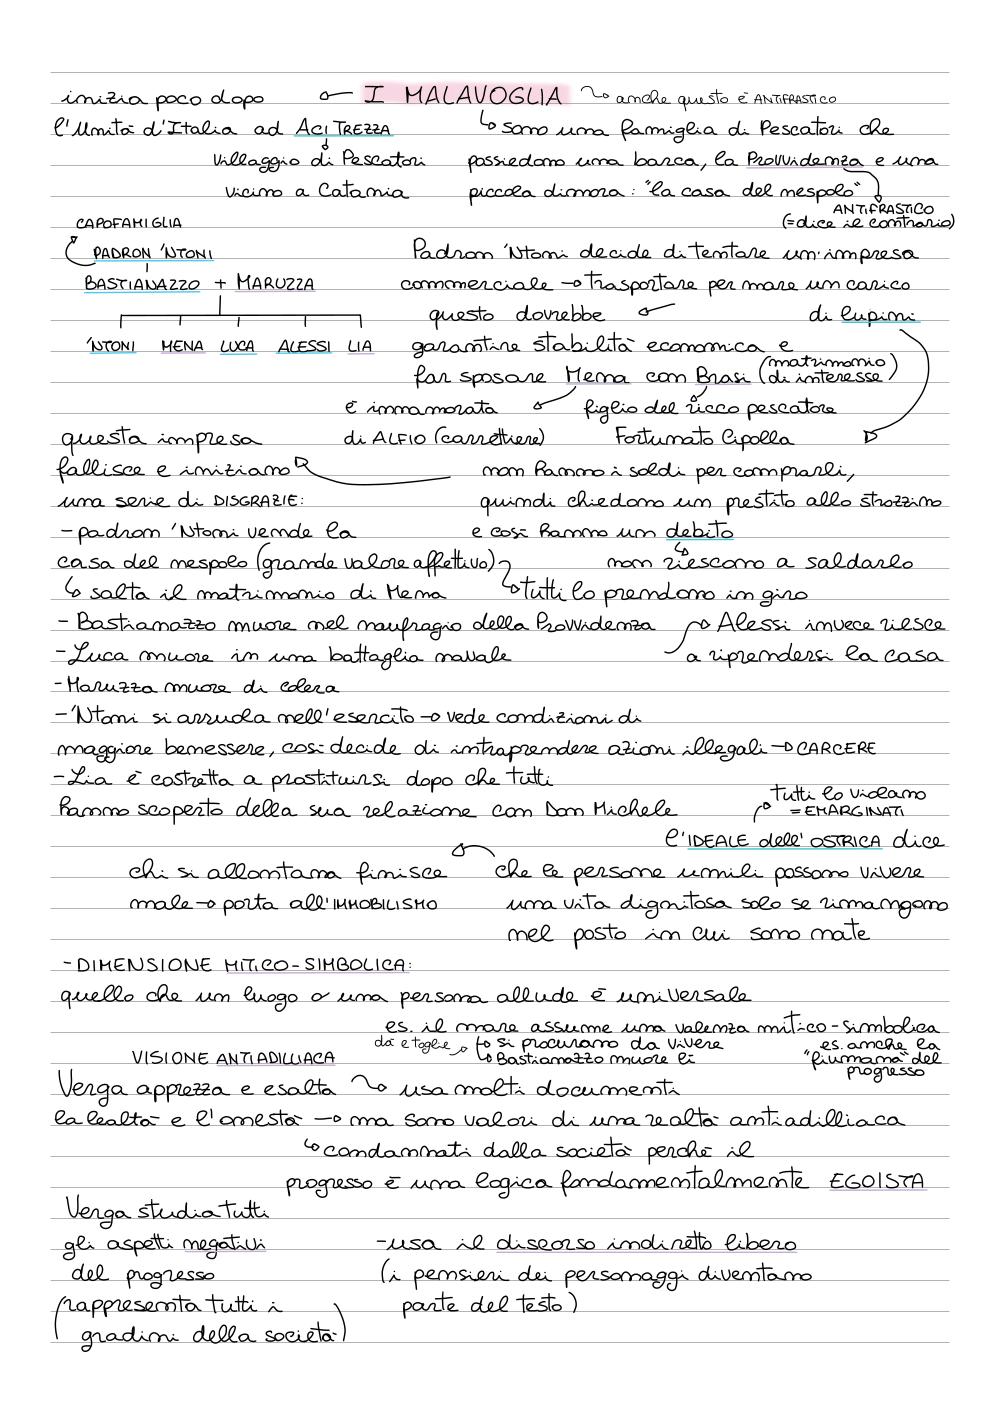 I MALAVOGLIA
anche questo è ANTIFRASTICO
inizia poco dopo
l'Unità d'Italia ad ACI TREZZA
villaggio di Pescatori
vicino a Catania
sono una famiglia di Pescatori che
possiedono una barca, la Provvidenza e una
piccola dimora: "la casa del nespolo"
ANTIFRASTICO
(=dice il contrario)
CAPOFAMIGLIA
PADRON 'NTONI
BASTIANAZZO + MARUZZA
'NTONI MENA LUCA ALESSI LIA
Padron 'Ntoni decide di tentare un'impresa
commerciale → trasportare per mare un carico
di lupini
questo dovrebbe
garantire stabilità economica e
far sposare Mena con Brasi (matrimonio
di interesse)
è innamorata
di ALFIO (carrettiere)
figlio del ricco pescatore
Fortunato Cipolla
non hanno i soldi per comprarli,
quindi chiedono un prestito allo strozzino
e così hanno un debito
non riescono a saldarlo
questa impresa
fallisce e iniziano
una serie di DISGRAZIE:
- padron 'Ntoni vende la
casa del nespolo (grande valore affettivo)
tutti lo prendono in giro
salta il matrimonio di Mena
- Bastianazzo muore nel naufragio della Provvidenza
Alessi invece riesce
a riprendersi la casa
- Luca muore in una battaglia navale
- Maruzza muore di colera
- 'Ntoni si arruola nell'esercito → vede condizioni di
maggiore benessere, così decide di intraprendere azioni illegali → CARCERE
- Lia è costretta a prostituirsi dopo che tutti
hanno scoperto della sua relazione con Don Michele
tutti lo violano
= EMARGINATI
l'IDEALE dell'OSTRICA dice
che le persone umili possono vivere
una vita dignitosa solo se rimangono
nel posto in cui sono nate
chi si allontana finisce
male → porta all'IMMOBILISMO
- DIMENSIONE MITICO-SIMBOLICA:
quello che un luogo o una persona allude è universale
es. il mare assume una valenza mitico-simbolica
dà e toglie
si procurano da vivere
Bastianazzo muore lì
es. anche la
"fiumana" del
progresso
VISIONE ANTIADILLIACA
Verga apprezza e esalta
usa molti documenti
la lealtà e l'onestà → ma sono valori di una realtà antiadilliaca
condannati dalla società perchè il
progresso è una logica fondamentalmente EGOISTA
Verga studia tutti
gli aspetti negativi
del progresso
(rappresenta tutti i
gradini della società)
- usa il discorso indiretto libero
(i pensieri dei personaggi diventano
parte del testo)